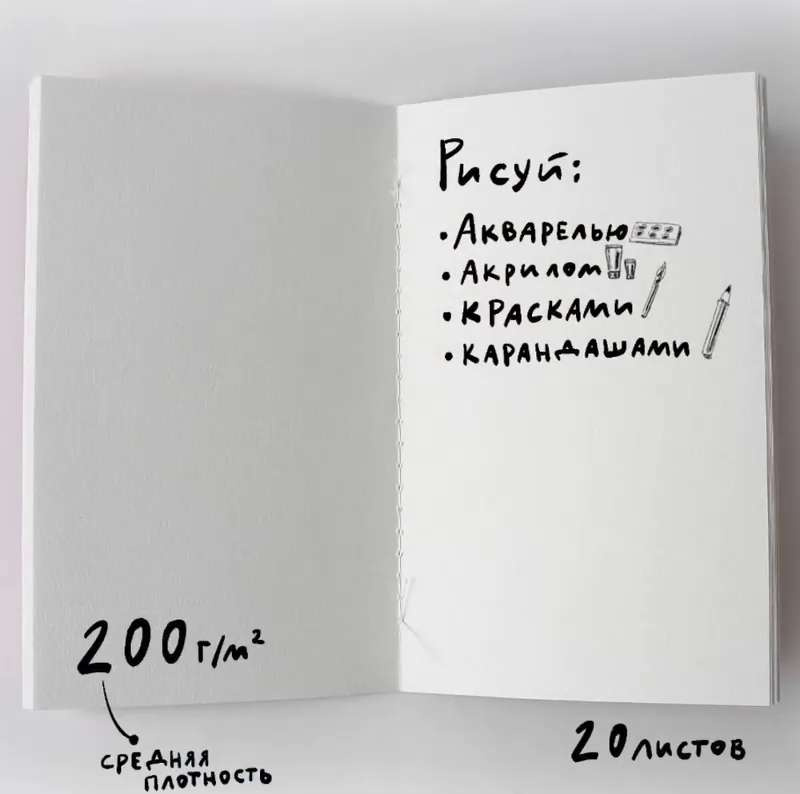 Рисуй:
• Акварелью
• Акрилом
• красками
• карандашами
200 г/м²
средняя
плотность
20 листов